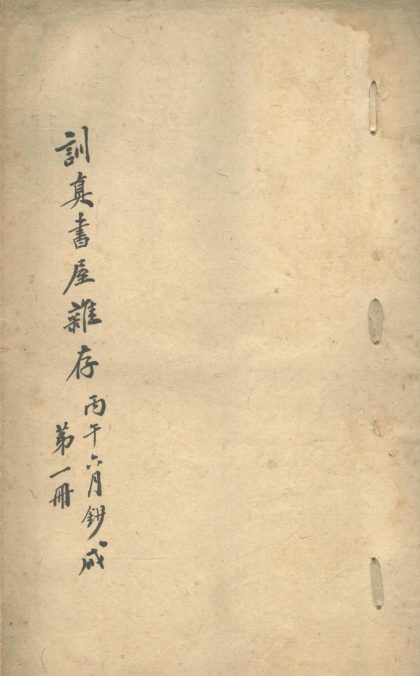 訓真書屋雜存丙午六月鈔成
第一冊